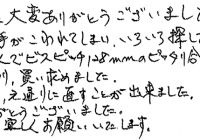 大変ありがとうございました
手がこわれてしまい、いろいろ探し
んでビスピッチ128mmのピッタリ合
り、買い求めました。
、元通りに直すことが出来ました。
がとうございました。
宜しくお願いいたします。